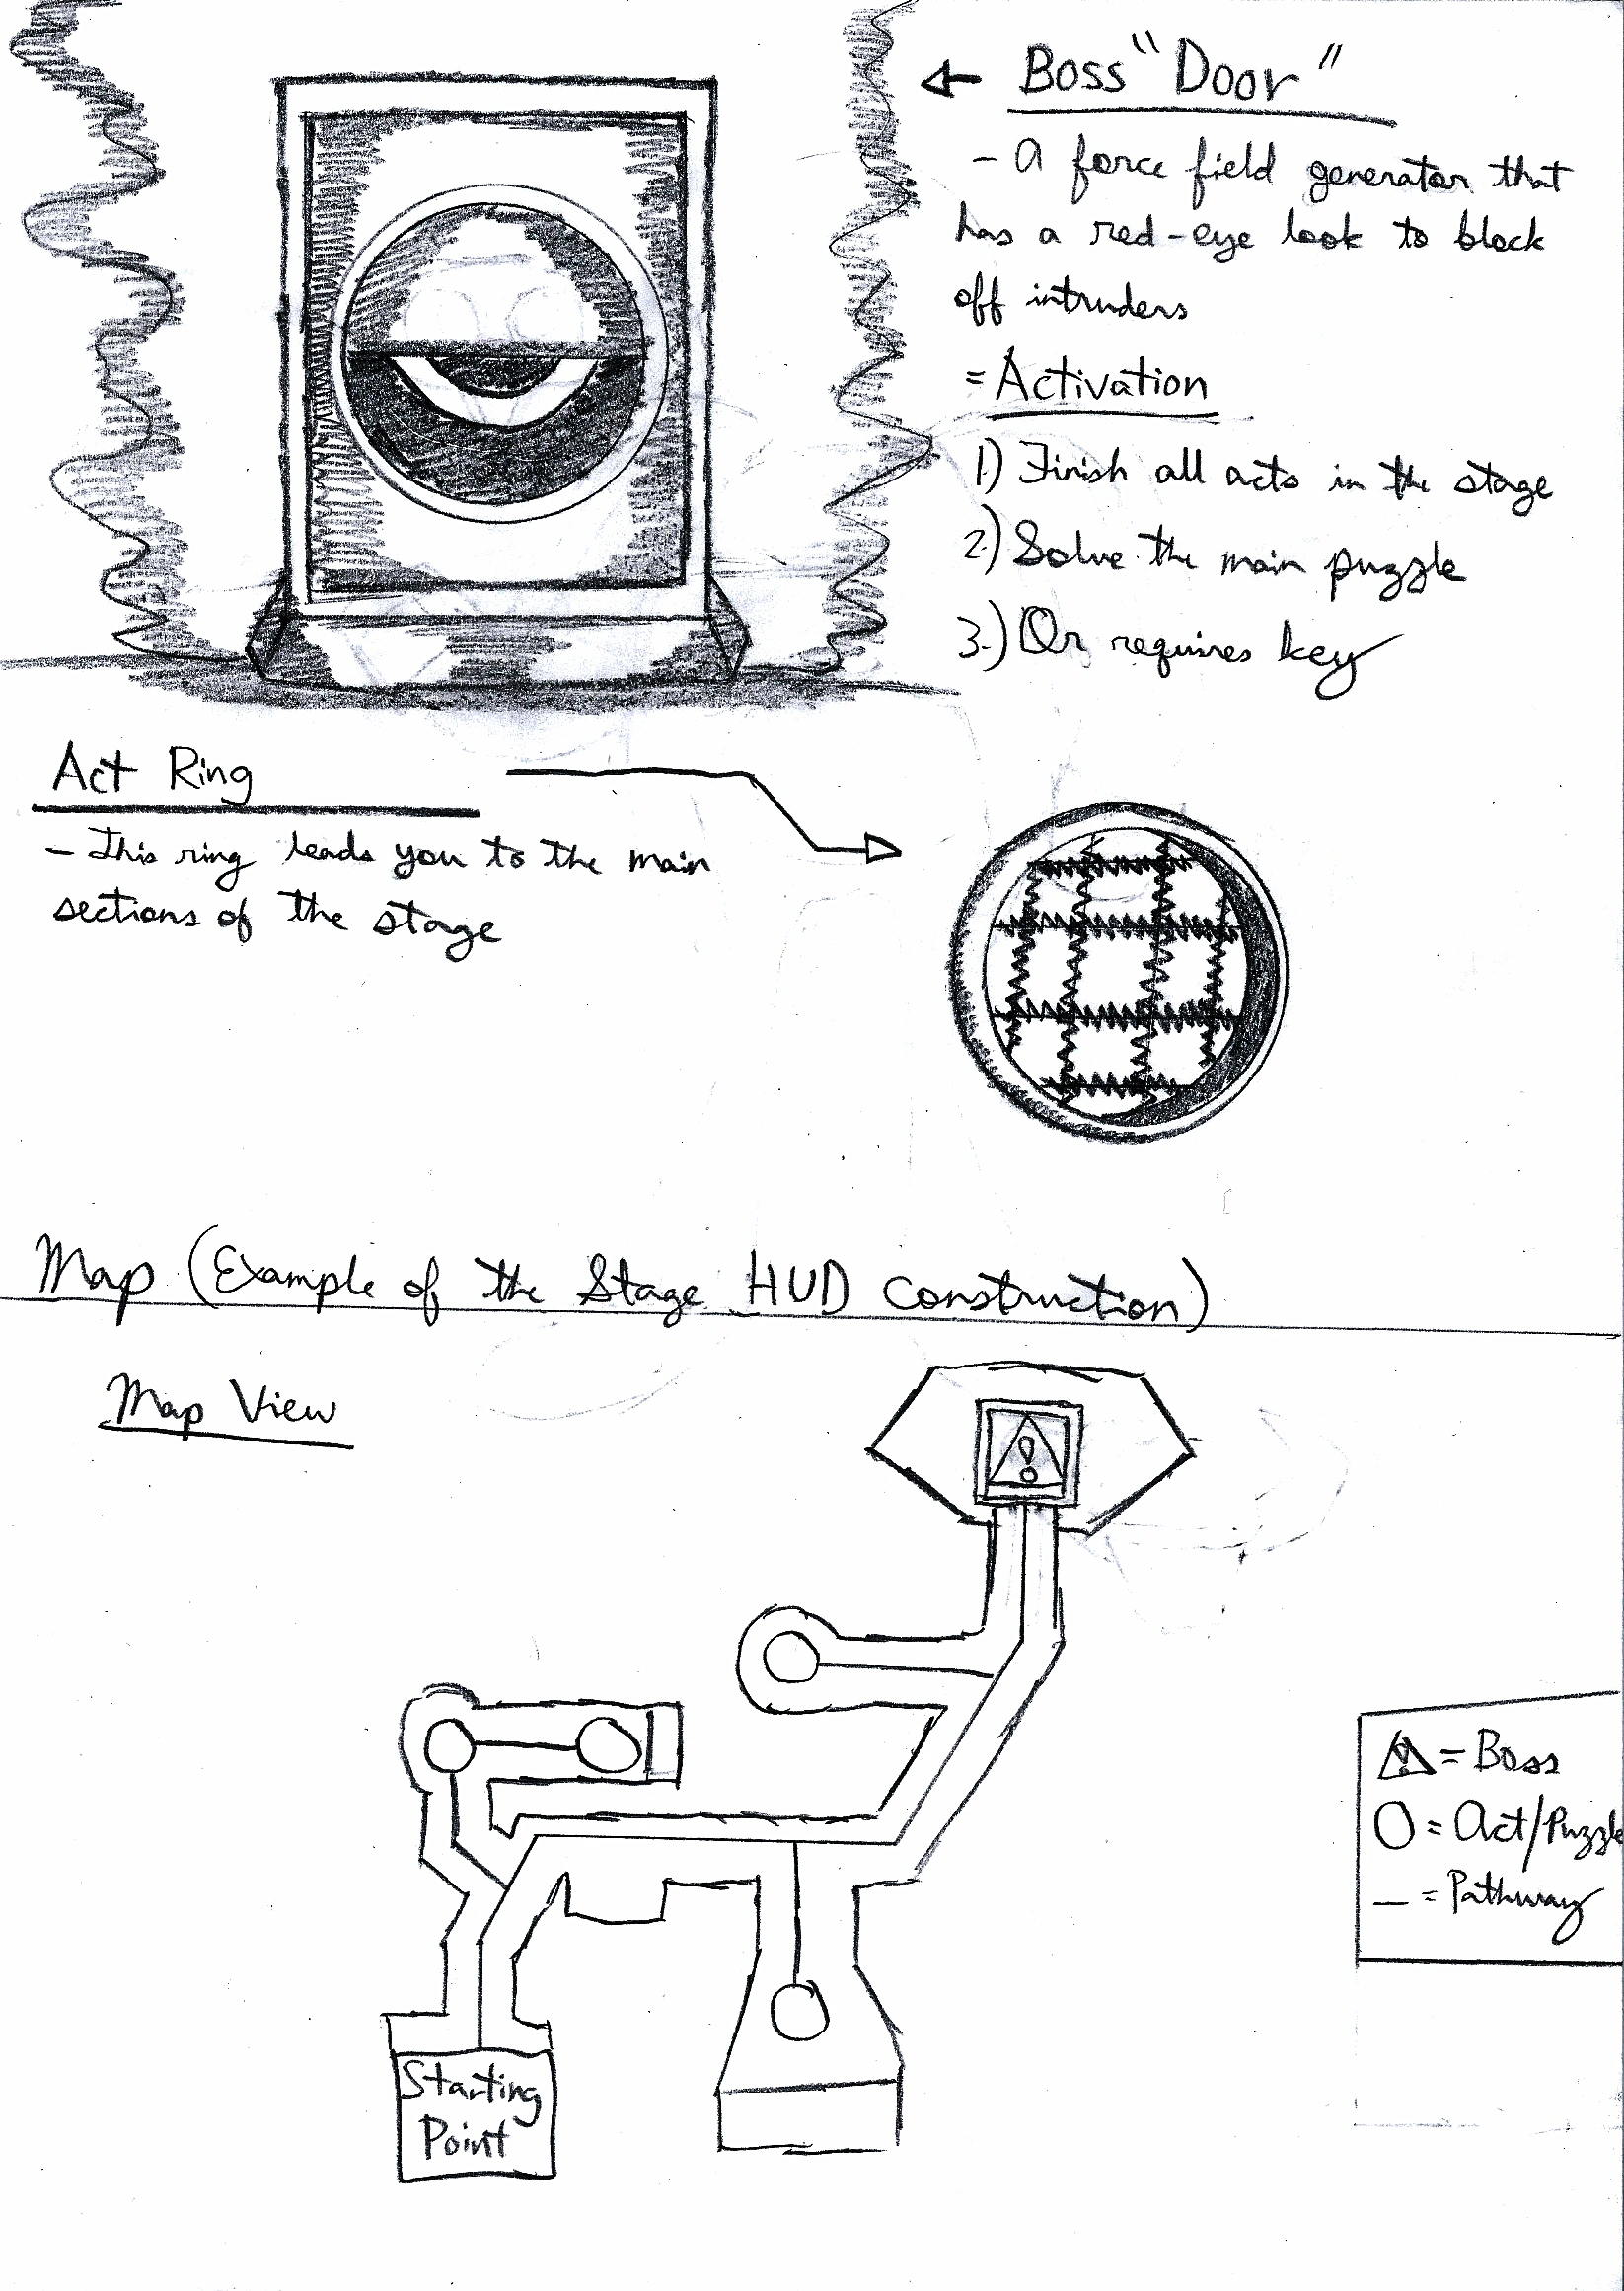 ← Boss "Door"
- A force field generator that
has a red-eye look to block
off intruders
= Activation
1) Finish all acts in the stage
2.) Solve the main puzzle
3.) Or requires key
Act Ring
- This ring leads you to the main
sections of the stage
Map (Example of the Stage HUD construction)
Map View
!
! = Boss
O = Act/Puzzle
— = Pathway
Starting
Point